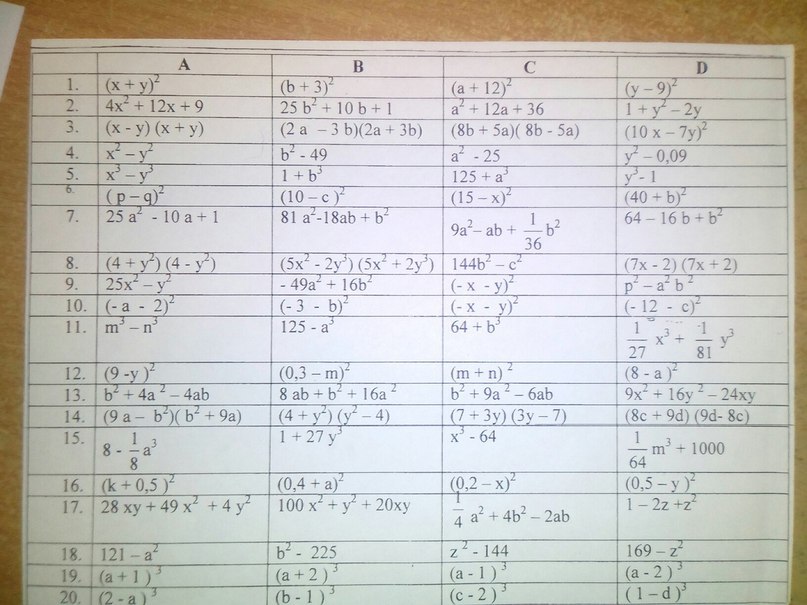 A B C D
1. (x + y)² (b + 3)² (a + 12)² (y – 9)²
2. 4x² + 12x + 9 25 b² + 10 b + 1 a² + 12a + 36 1 + y² – 2y
3. (x - y) (x + y) (2 a – 3 b)(2a + 3b) (8b + 5a)( 8b - 5a) (10 x – 7y)²
4. x² – y² b² - 49 a² - 25 y² – 0,09
5. x³ – y³ 1 + b³ 125 + a³ y³- 1
6. ( p – q)² (10 – c )² (15 – x)² (40 + b)²
7. 25 a² - 10 a + 1 81 a²-18ab + b² 9a²– ab + 1/36 b² 64 – 16 b + b²
8. (4 + y²) (4 - y²) (5x² - 2y³) (5x² + 2y³) 144b² – c² (7x - 2) (7x + 2)
9. 25x² – y² - 49a² + 16b² (- x - y)² p² – a² b ²
10. (- a - 2)² (- 3 - b)² (- x - y)² (- 12 - c)²
11. m³ – n³ 125 - a³ 64 + b³ 1/27 x³ + 1/81 y³
12. (9 -y )² (0,3 – m)² (m + n) ² (8 - a )²
13. b² + 4a ² – 4ab 8 ab + b² + 16a ² b² + 9a ² – 6ab 9x² + 16y ² – 24xy
14. (9 a – b²)( b² + 9a) (4 + y²) (y² – 4) (7 + 3y) (3y – 7) (8c + 9d) (9d- 8c)
15. 8 - 1/8 a³ 1 + 27 y³ x³ - 64 1/64 m³ + 1000
16. (k + 0,5 )² (0,4 + a)² (0,2 – x)² (0,5 – y )²
17. 28 xy + 49 x² + 4 y² 100 x² + y² + 20xy 1/4 a² + 4b² – 2ab 1 – 2z +z²
18. 121 – a² b² - 225 z ² - 144 169 – z²
19. (a + 1 ) ³ (a + 2 ) ³ (a - 1 ) ³ (a - 2 ) ³
20. (2 - a ) ³ (b - 1 ) ³ (c - 2 ) ³ ( 1 – d )³